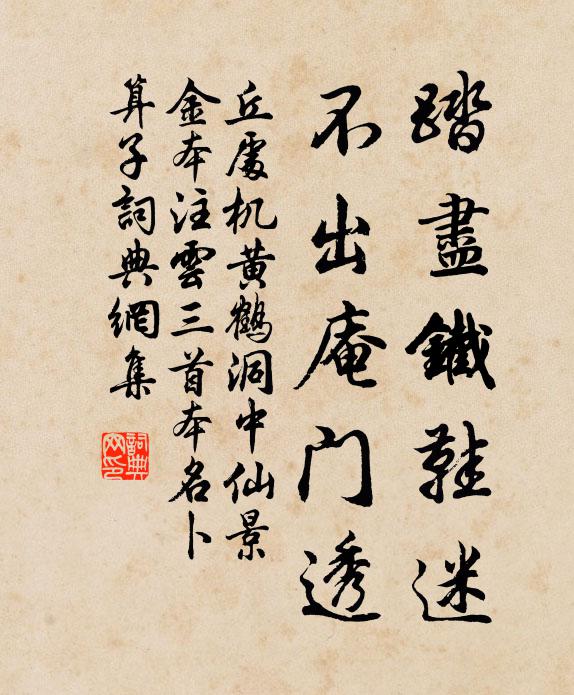 踏盡鐵鞋迷
不出庵门透
丘處机黄鶴洞中仙景
金本注雲三首本名卜
算子詞典網集
詞典網印